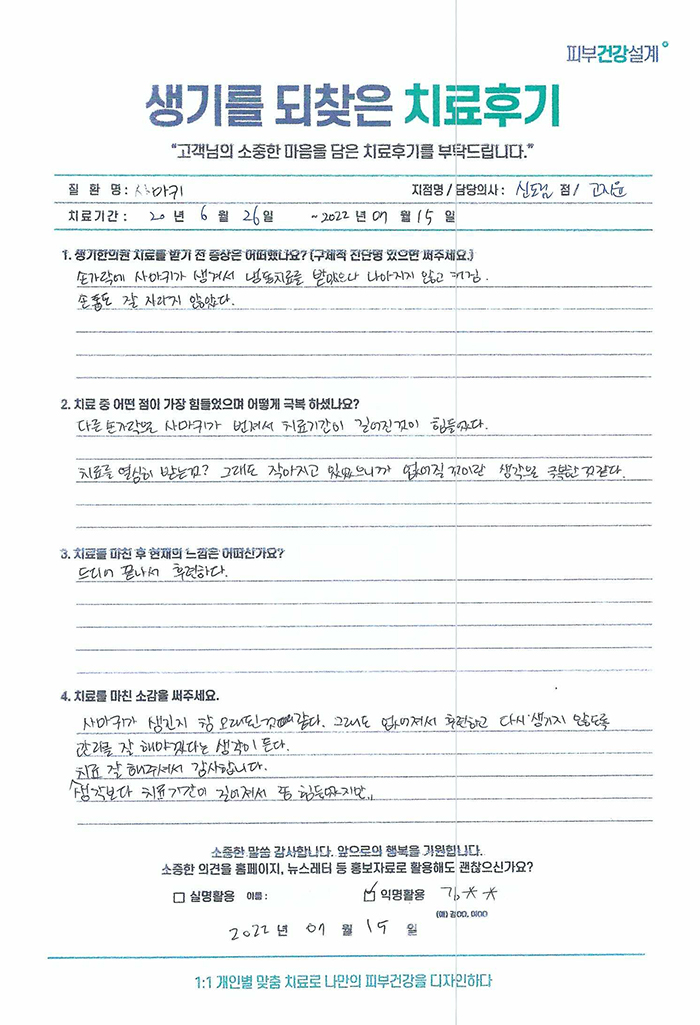 피부건강설계
생기를 되찾은 치료후기
“고객님의 소중한 마음을 담은 치료후기를 부탁드립니다.”
질 환 명 : 사마귀 지점명 / 담당의사 : 신도림 점 / 고지윤
치료기간 : 20 년 6 월 26일 ~2022 년 07 월 15 일
1. 생기한의원 치료를 받기 전 증상은 어떠했나요? (구체적 진단명 있으면 써주세요.)
손가락에 사마귀가 생겨서 냉동치료를 받았으나 나아지지 않고 커짐.
손톱도 잘 자라지 않았다.
2. 치료 중 어떤 점이 가장 힘들었으며 어떻게 극복 하셨나요?
다른 손가락으로 사마귀가 번져서 치료기간이 길어진것이 힘들었다.
치료를 열심히 받는것? 그래도 작아지고 있었으니까 없어질 것이란 생각으로 극복한 것같다.
3. 치료를 마친 후 현재의 느낌은 어떠신가요?
드디어 끝나서 후련하다.
4. 치료를 마친 소감을 써주세요.
사마귀가 생긴지 참 오래된것 같다. 그래도 없어져서 후련하고 다시 생기지 않도록
관리를 잘 해야겠다는 생각이 든다.
치료 잘 해주셔서 감사합니다.
생각보다 치료기간이 길어져서 좀 힘들었지만,,
소중한 말씀 감사합니다. 앞으로의 행복을 기원합니다.
소중한 의견을 홈페이지, 뉴스레터 등 홍보자료로 활용해도 괜찮으신가요?
실명활용 이름 : 익명활용 김**
(예) 김OO, 이OO
2022 년 07 월 15 일
1:1 개인별 맞춤 치료로 나만의 피부건강을 디자인하다